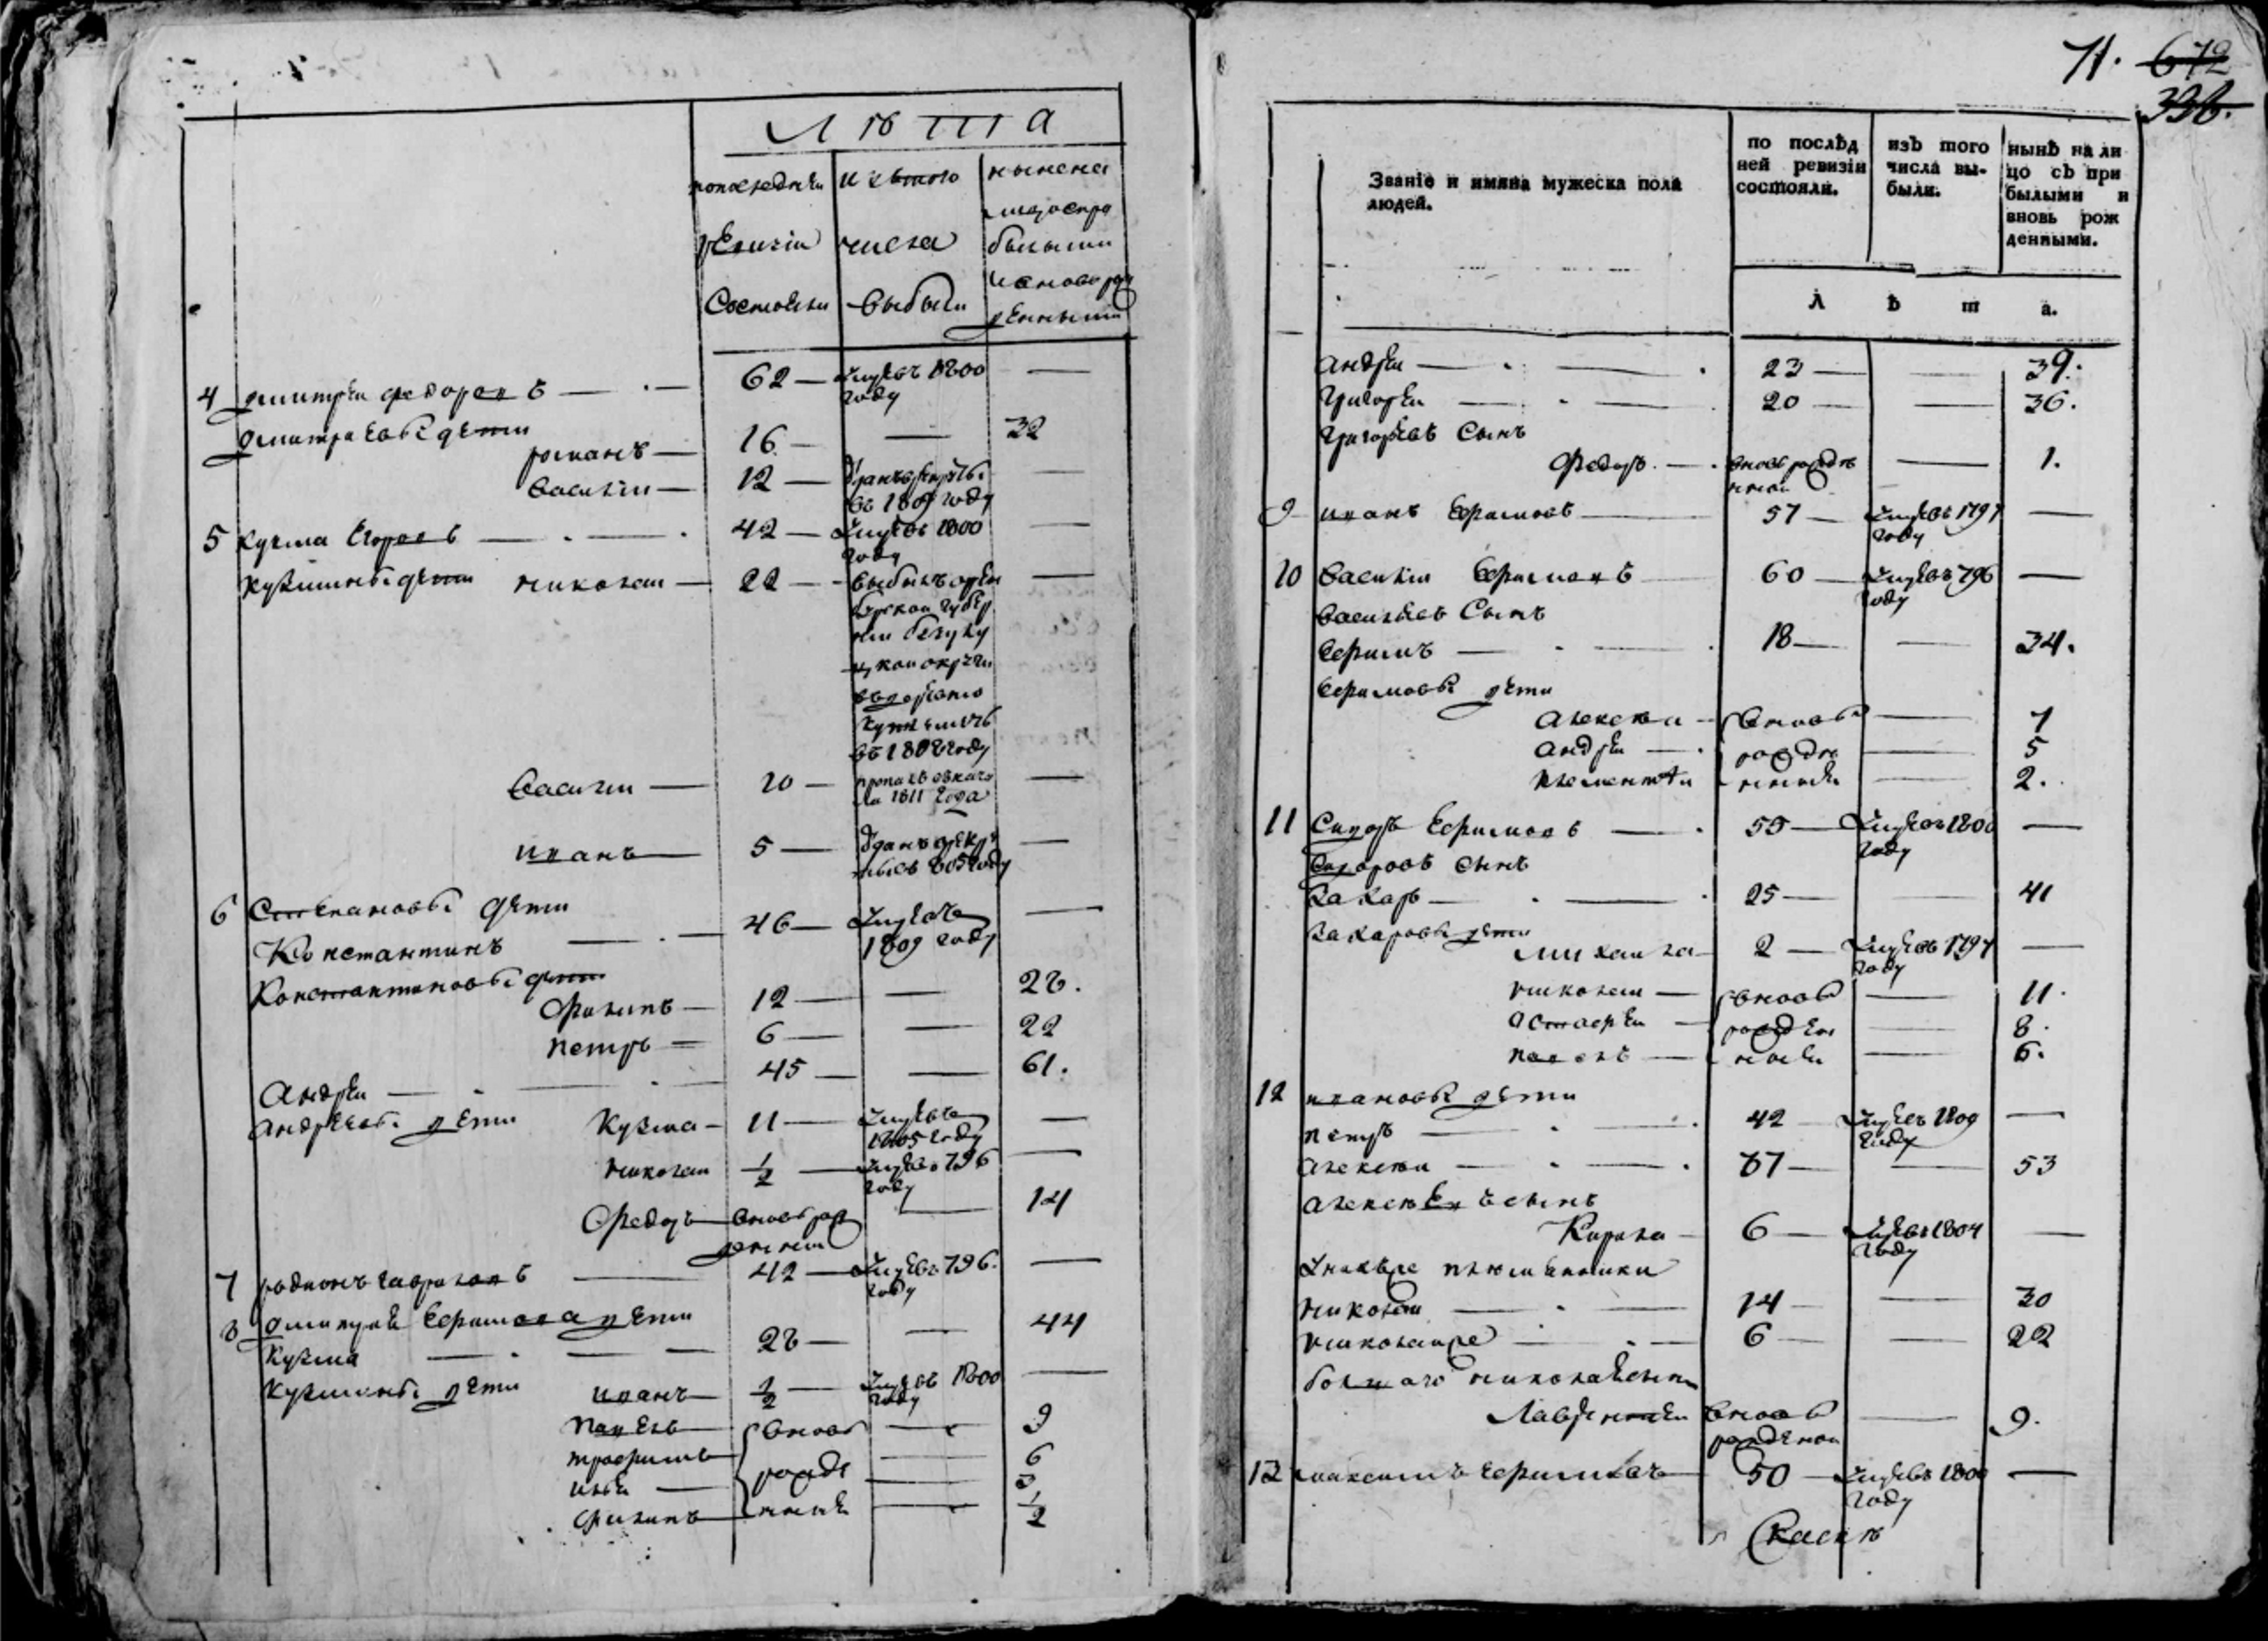 Лѣта
попоследней
ревизіи
Состояли
изътого
числа
выбыли
ныне на
лицо спри
былыми
и вновь рож
денными
4 дмитрей федоровъ — 62 — умревъ 1800 —
году
дмитриевы дети
романъ — 16 — — 32
василеи — 12 — —
въ 1809 году
5 кузма Егоровъ — 42 — умревъ 1800 —
году
кузмины дети николаи — 22 — выбылъ
губер
въ 180 году
василеи — 10 — —
1811 года
иванъ — 5 — отданъ —
805 году
6 Степановы дети
Константинъ — 46 — умревъ —
1809 году
Константиновы дети
Филипъ — 12 — — 28.
петръ — 6 — — 22
Андреи — 45 — — 61.
андреевы дети кузма — 11 — умревъ —
1805 году
николаи ½ — умревъ 796 —
году
Федоръ — вновь рож — 14
денной
7 родионъ гавриловъ — 42 — умревъ 796. —
году
8 дмитрея Ефимова дети
кузма — 28 — — 44
кузмины дети иванъ — ½ — умревъ 1800 —
году
павелъ — вновь — 9
трофимъ — 6
илья — рожде — 3
филипъ — нныя — ½
71. 672
336.
Званіе и имяна мужеска пола
людей.
по послѣд
ней ревизіи
состояли.
изъ того
числа вы-
были.
нынѣ на ли
цо съ при
былыми и
вновь рож
денными.
л ѣ т а.
андреи — 23 — — 39.
григореи — 20 — — 36.
григорьевъ Сынъ
Федоръ — вновь рожде — 1.
нной
9 иванъ Ефимовъ — 57 — умревъ 1797 —
году
10 василеи Ефимовъ 60 — умревъ 796 —
году
васильевъ Сынъ
Ефимъ — 18 — — 34.
Ефимовы дети
алексеи — вновь — 7
андреи — рожде — 5
климентеи — нныя — 2.
11 Сидоръ Ефимовъ — 55 — умревъ 1800 —
году
Сидоровъ сынъ
захаръ — 25 — — 41
захаровы дети
михаила — 2 — умревъ 1797 —
году
николаи — вновь — 11.
астафеи — рожден — 8.
павелъ — ныя — 6.
12 ивановы дети
петръ — 42 умревъ 1809 —
году
алексеи — 37 — — 53
алексеевъ сынъ
Кирила — 6 — умревъ 1804 —
году
племянники
николаи — 14 — — 30
николаи — 6 — — 22
николая сынъ
Лаврентеи вновь — 9.
рожденои
13 максимъ Ефимовъ — 50 — умревъ 1800 —
году